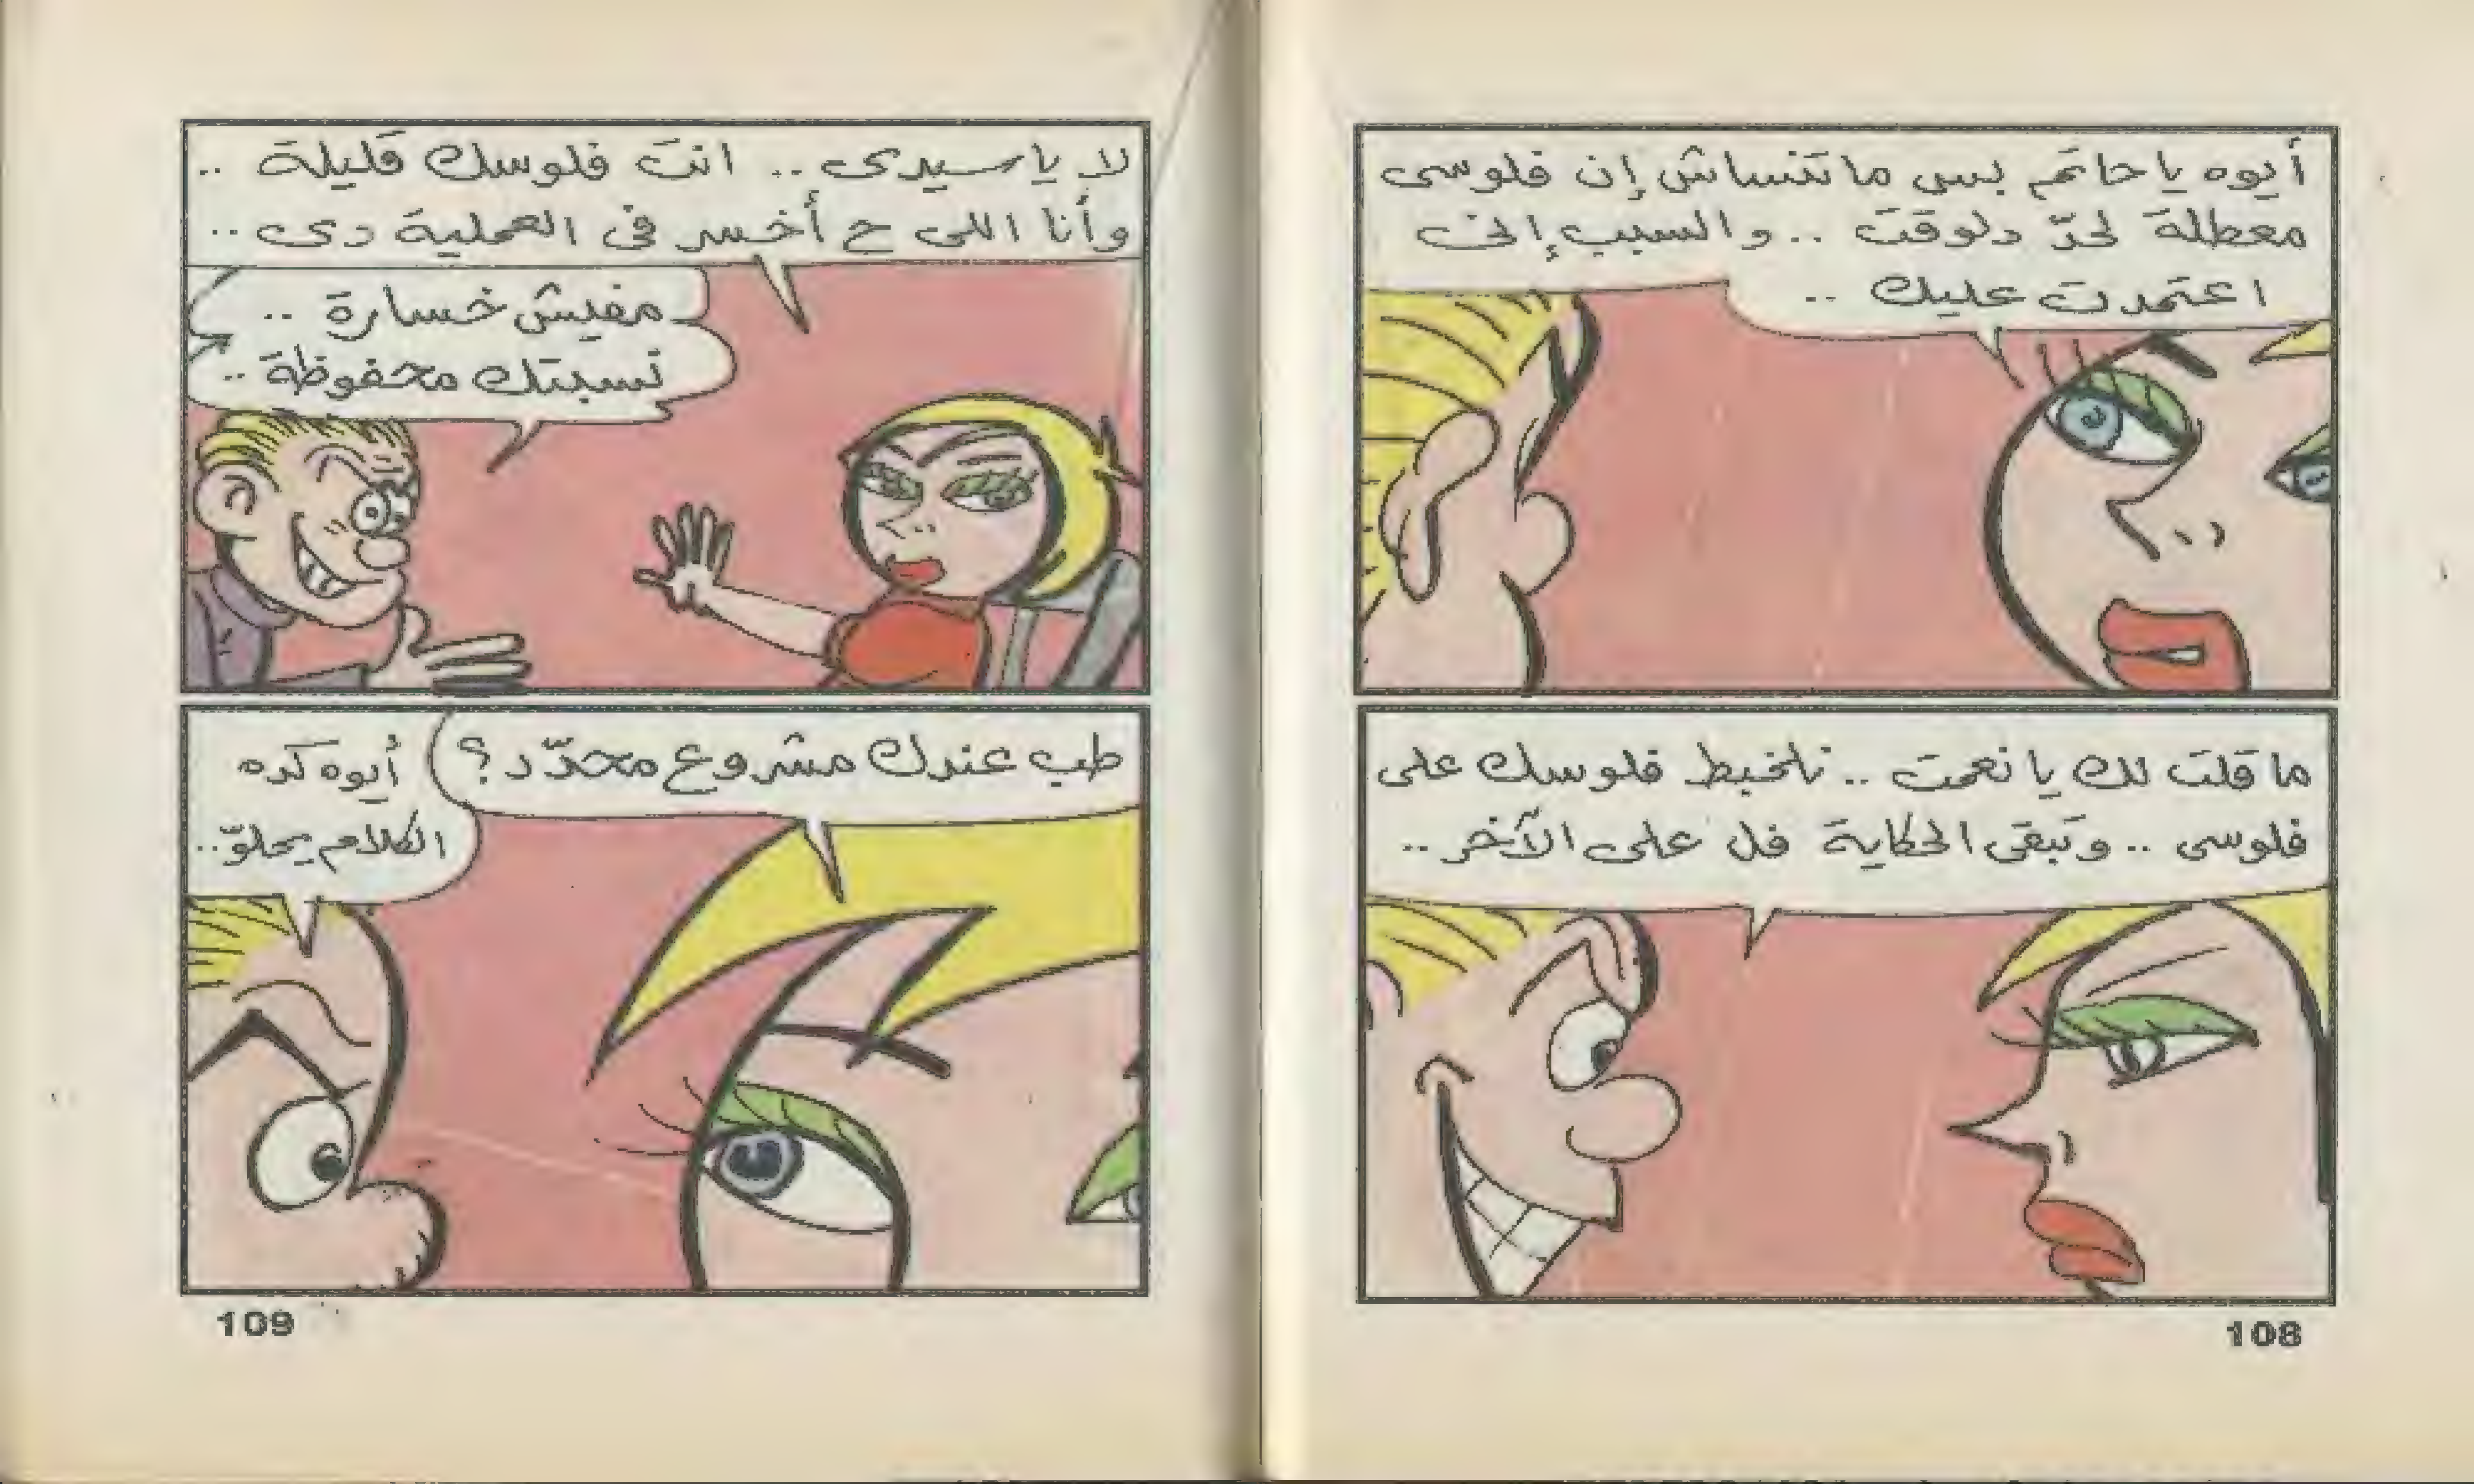 أيوه ياحاتم بس ماتنساش إن فلوسى
معطلة لحدّ دلوقت .. والسبب إنى
اعتمدت عليك ..
ما قلت لك يا نعمت .. نلخبط فلوسك على
فلوسى .. وتبقى الحكاية فل على الآخر ..
108
لا ياسيدى .. انت فلوسك قليلة ..
وأنا اللى ح أخسر فى العملية دى ..
مفيش خسارة ..
نسبتك محفوظة ..
طب عندك مشروع محدّد ؟
أيوه كده
الكلام يحلوّ ..
109